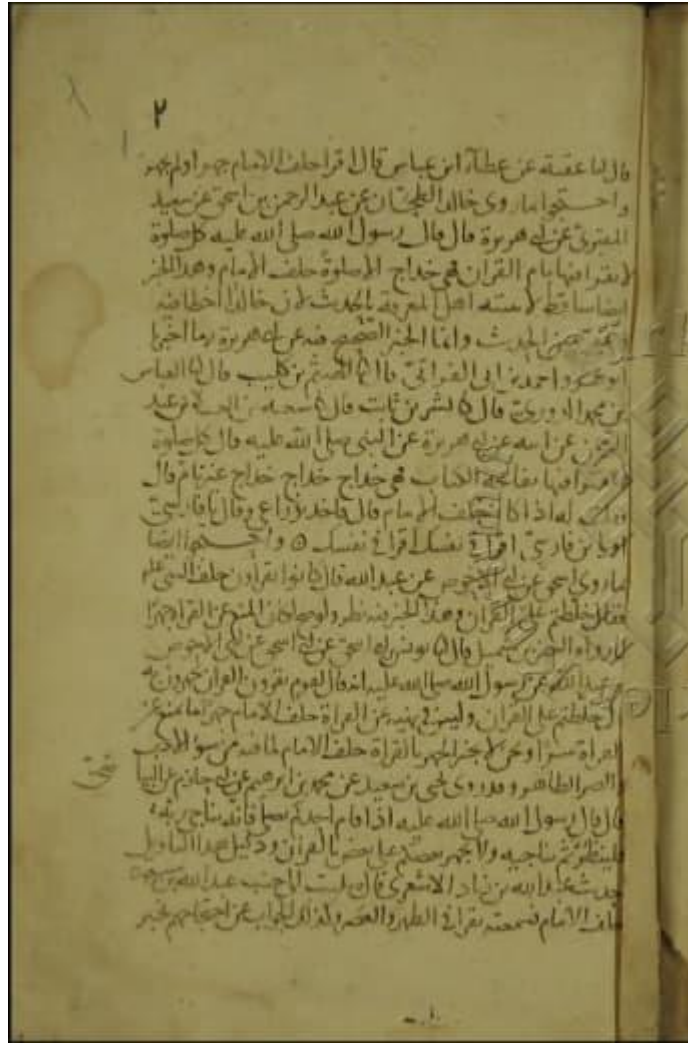 ٢
قال لنا عقبة عن عطاء ابن عباس قال اقرا خلف الامام جهر اولم يجهر
واحتجوا بما روى خالد الطحان عن عبد الرحمن بن اسحق عن سعيد
المقبرى عن ابى هريرة قال قال رسول الله صلى الله عليه كل صلوة
لا يقرا فيها بام القران فهى خداج الا صلوة خلف الامام وهذا الخبر
ايضا ساقط لا يثبته اهل المعرفة بالحديث لان خالدا اخطا فيه
الحديث وانما الخبر الصحيح فيه عن ابى هريرة ما اخبرنا
واحمد بن ابى الفراتى قالا الهيثم بن كليب قال نا العباس
بن محمد الدورى قال نا بشر بن ثابت قال نا شعبة عن العلاء بن عبد
الرحمن عن ابيه عن ابى هريرة عن النبى صلى الله عليه قال كل صلوة
لا يقرا فيها بفاتحة الكتاب فهى خداج خداج خداج غير تام قال
فقلت له اذا كان خلف الامام قال فاخذ بذراعى وقال يا فارسى
او يا بن فارسى اقرا فى نفسك اقرا فى نفسك ٥ واحتجوا ايضا
بما روى اسحق عن ابى الاحوص عن عبد الله قال كانوا يقرأون خلف النبى علم
فقال خلطتم على القران وهذا الخبر فيه نظر ولو صح لكان المنع عن القراءة جهرا
لما رواه النضر بن شميل قال نا يونس بن ابى اسحق عن ابى اسحق عن ابى الاحوص
عن عبد الله عن رسول الله صلى الله عليه انه قال لقوم يقرون القران يجهرون به
خلطتم على القران وليس فى نهيه عن القراة خلف الامام جهرا ما يمنع عن
القراة سرا ونحن لا نجيز الجهر بالقراة خلف الامام لما فيه من سوء الادب
والضرر الظاهر وقد روى يحيى بن سعيد عن محمد بن ابرهيم عن ابى حازم عن البياضى
قال قال رسول الله صلى الله عليه اذا قام احدكم يصلى فانه يناجى ربه
فلينظر بم يناجيه ولا يجهر بعضكم على بعض بالقران ودليل هذا التاويل
حديث عبد الله بن زياد الاشعرى قال صليت الى جنب عبد الله بن مسعود
خلف الامام فسمعته يقرا فى الظهر والعصر وكذلك الجواب عن احتجاجهم بخبر